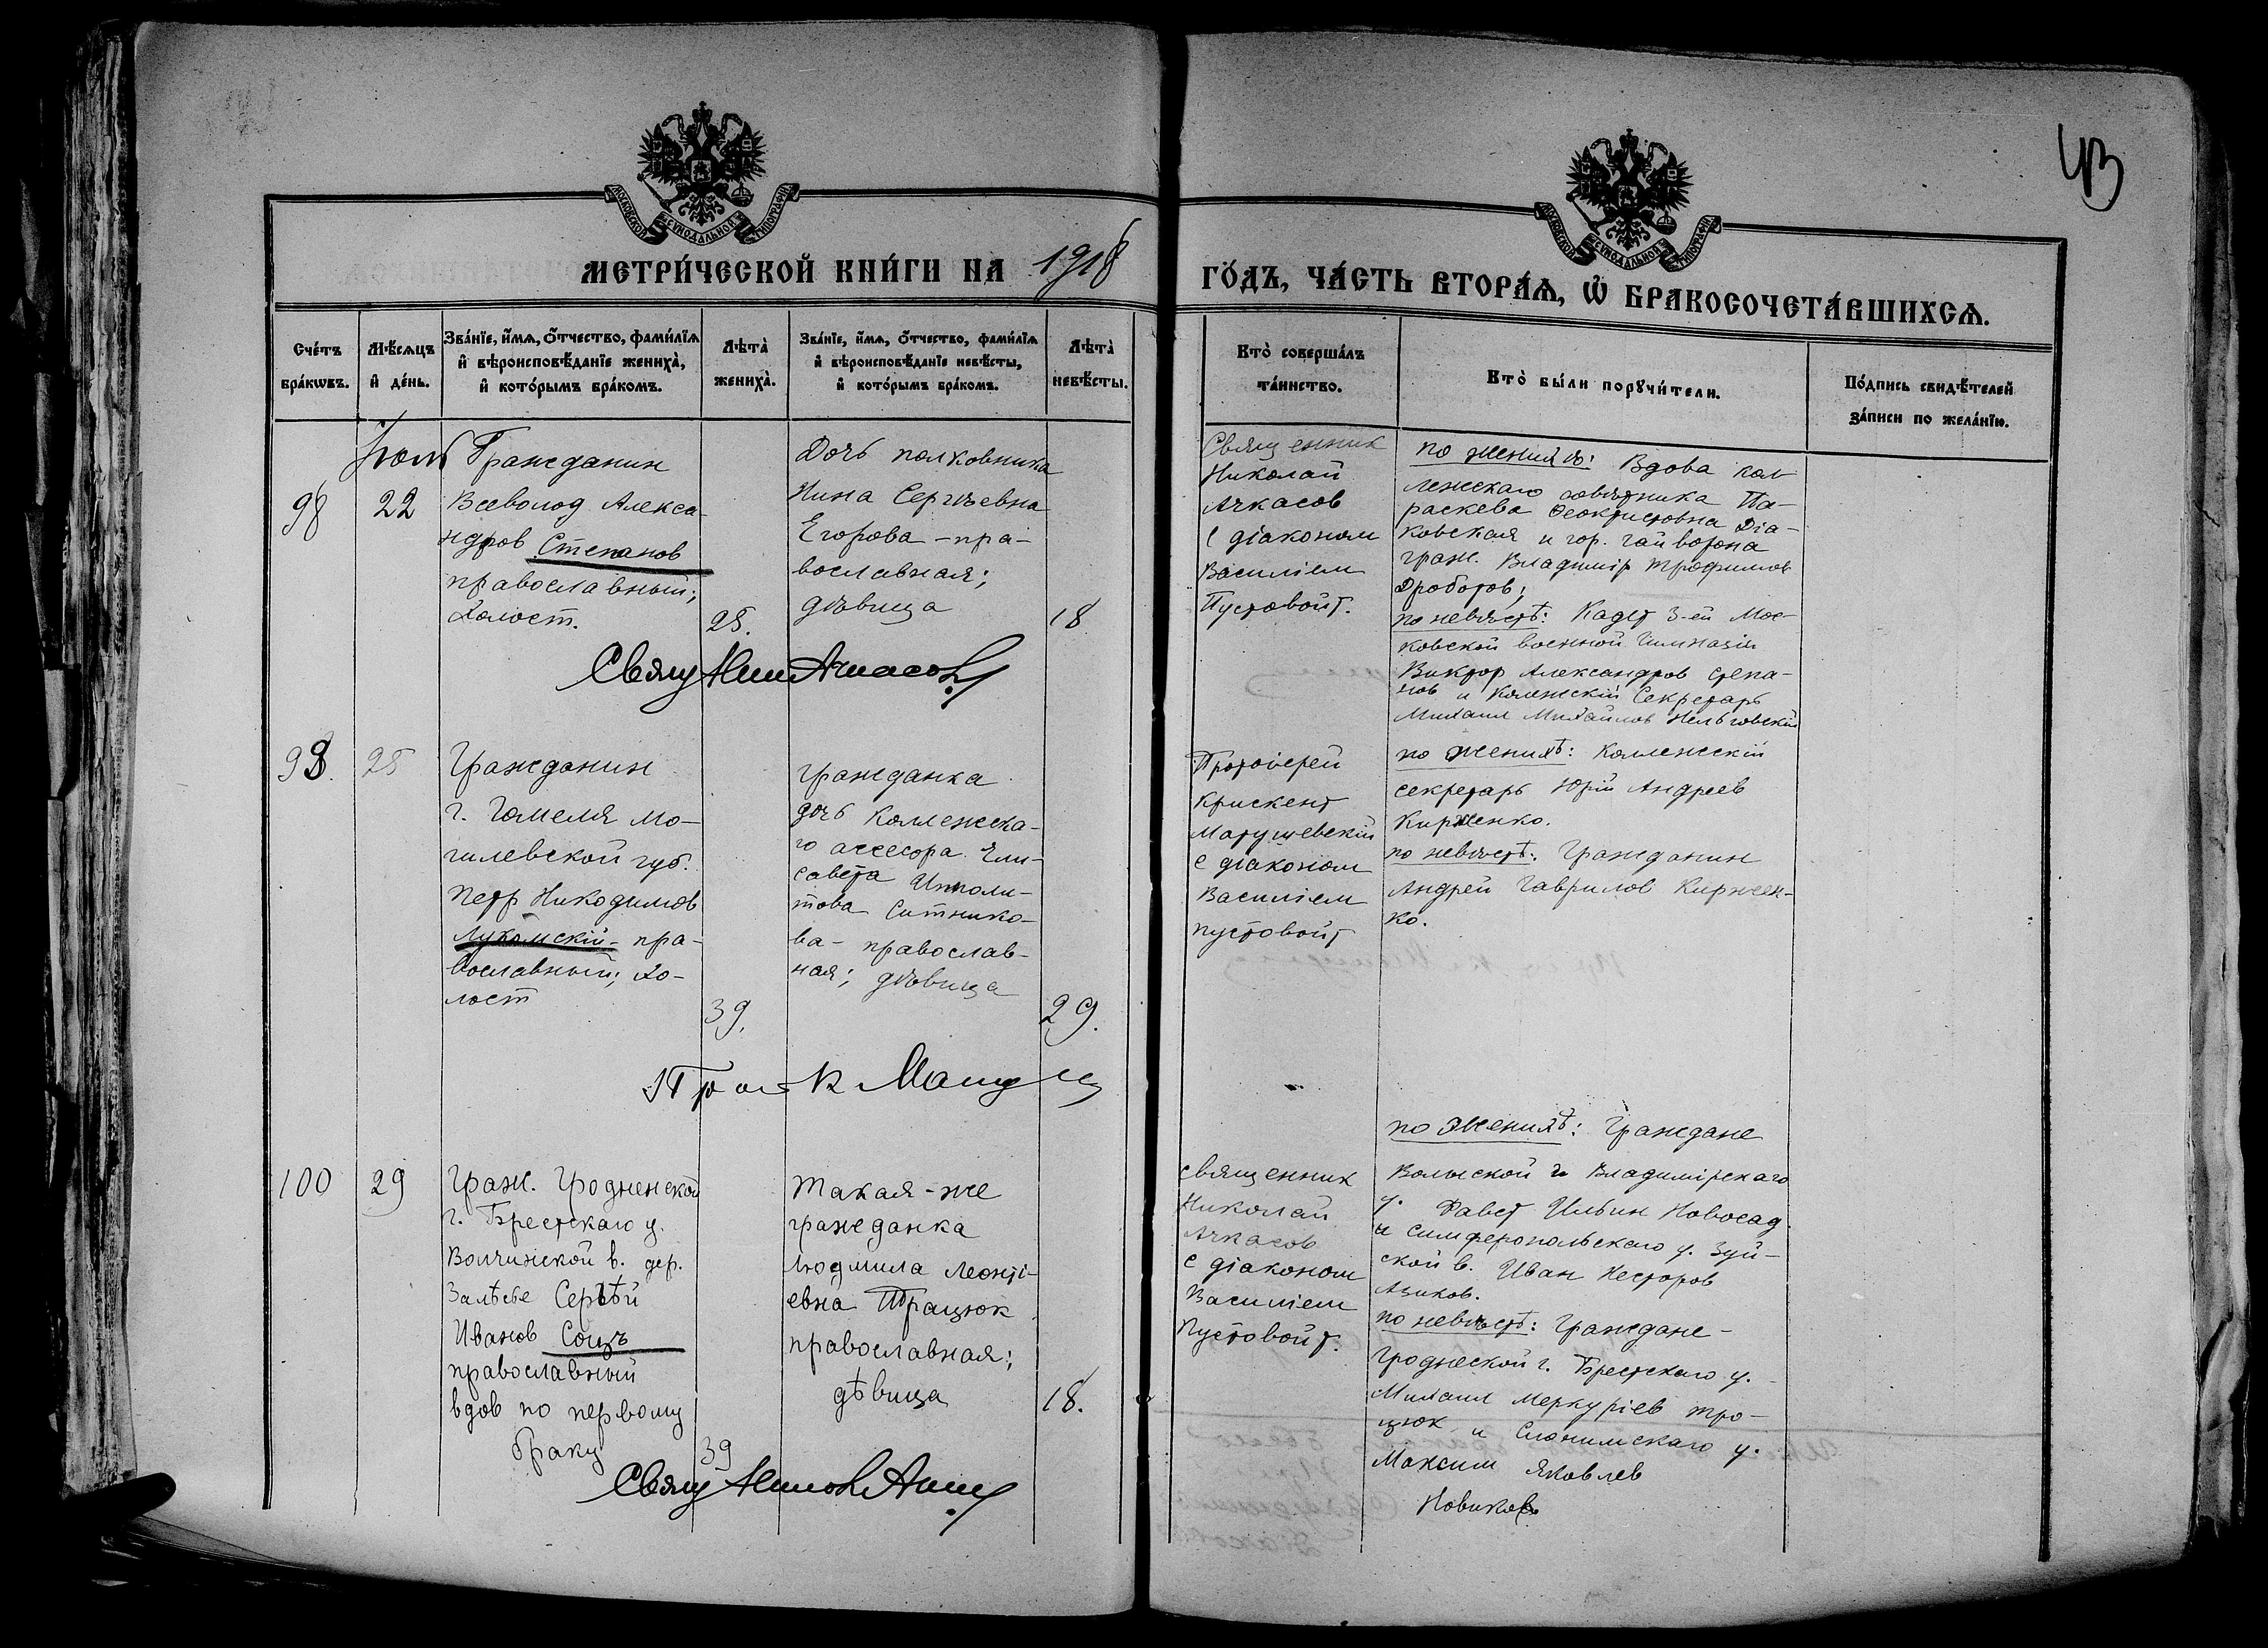 43
МОСКОВСКОЙ СѴНОДАЛЬНОЙ ТИПОГРАФІИ
МОСКОВСКОЙ СѴНОДАЛЬНОЙ ТИПОГРАФІИ
МЕТРИ́ЧЕСКОЙ КНИ́ГИ НА 1918
ГО́ДЪ, ЧА́СТЬ ВТОРА́Ѧ, Ѽ БРАКОСОЧЕТА́ВШИХСѦ.
Сче́тъ
бра́кѡвъ.
Мѣ́сѧцъ
и҆ де́нь.
Зва́нїе, и҆́мѧ, ѻ҆́тчество, фами́лїѧ
и҆ вѣроисповѣ́данїе жениха̀,
и҆ кото́рымъ бра́комъ.
Лѣта̀
жениха̀.
Зва́нїе, и҆́мѧ, ѻ҆́тчество, фами́лїѧ
и҆ вѣроисповѣ́данїе невѣ́сты,
и҆ кото́рымъ бра́комъ.
Лѣта̀
невѣ́сты.
Кто̀ соверша́лъ
та́инство.
Кто̀ бы́ли порꙋчи́тели.
По́дпись свидѣ́телей
за́писи по жела́нїю.
98
22
Гражданин
Всеволод Алекса-
ндров Степанов
православный;
холост.
25.
Дочь полковника
Нина Сергѣевна
Егорова - пра-
вославная;
дѣвица
18
Священник
Николай
Ачкасов
с діаконом
Василіем
Пустовойт.
по женихѣ: Вдова кол-
лежскаго совѣтника Па-
раскева Феоктистовна Діа-
ковская и гор. Гайворона
граж. Владимір Трофимов
Дроботов;
по невѣстѣ: Кадет 3-ей Мос-
ковской военной гимназіи
Виктор Александров Степа-
нов и Колежскій Секретарь
Михаил Михайлов
Свящ
99.
25
Гражданин
г. Гомеля Мо-
гилевской губ.
Петр Никодимов
Лукомскій - пра-
вославный; хо-
лост
39.
Гражданка
дочь Коллежска-
го ассесора Ели-
савета Ипполи-
това Ситнико-
ва - православ-
ная; дѣвица
29.
Протоіерей
Крискент
Матушевскій
с діаконом
Василіем
Пустовойт
по женихѣ: Коллежскій
секретарь Юрій Андреев
Кирженко.
по невѣстѣ: Гражданин
Андрей Гаврилов Киржен-
ко.
100
29
Граж. Гродненской
г. Брестскаго у.
Волчинской в. дер.
Залѣсье Сергѣй
Иванов Соцъ
православный
вдов по первому
браку
39
Такая-же
гражданка
Людмила Леонті-
евна Трацюк
православная;
дѣвица
18.
Священник
Николай
Ачкасов
с діаконом
Василіем
Пустовойт.
по женихѣ: Граждане
Волыской г. Владимірскаго
у. Павел Ильин Новосад
и Симферопольскаго у. Зуй-
ской в. Иван Несторов
Азиков.
по невѣстѣ: Граждане -
Гроднеской г. Брестскаго у.
Михаил Меркуріев Тро-
цюк и Слонимскаго у.
Максим Яковлев
Новиков
Свящ